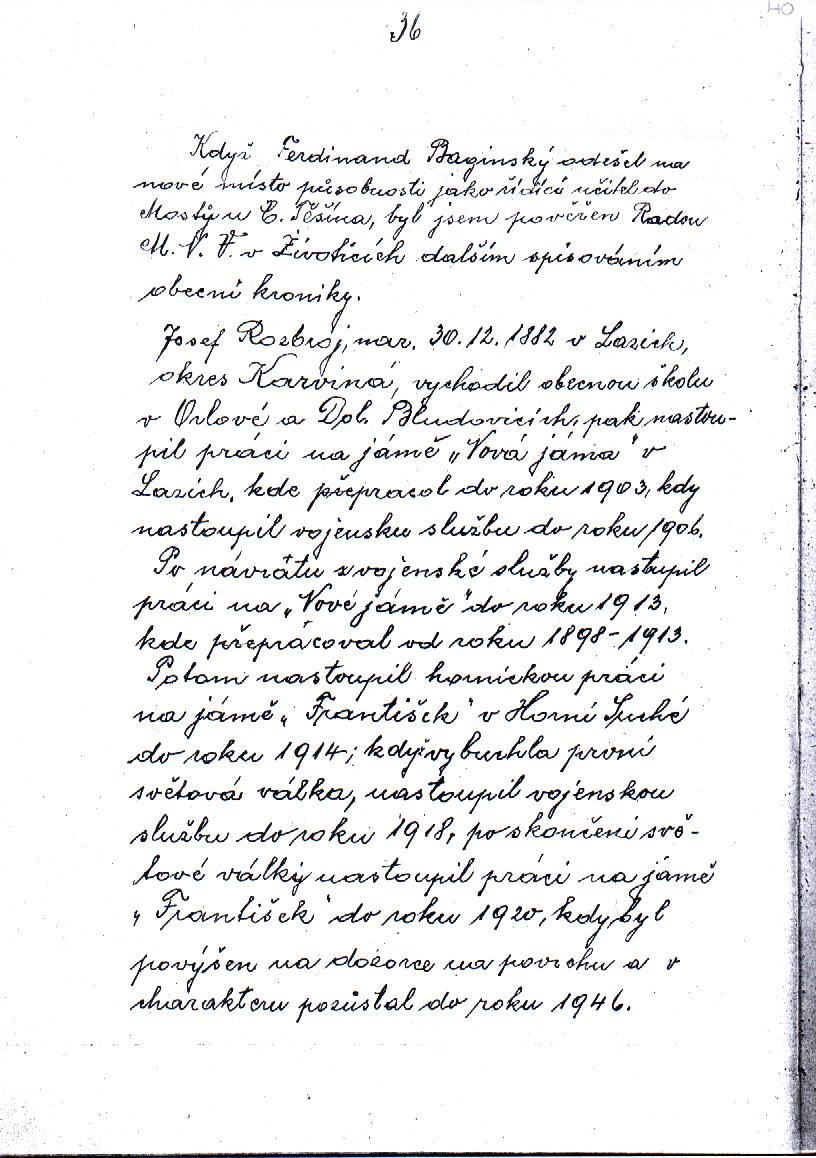 40
36
Když Ferdinand Baginský odešel na
nové místo působnosti jako řídící učitel do
Mostů u Č. Těšína, byl jsem pověřen Radou
M. N. V. v Životicích dalším spisováním
obecní kroniky.
Josef Rozbroj, nar. 30. 12. 1882 v Lazich,
okres Karviná, vychodil obecnou školu
v Orlové a Dol. Bludovicích, pak nastou-
pil práci na jámě „Nová jáma" v
Lazich, kde přepracol do roku 1903, kdy
nastoupil vojensku službu do roku 1906.
Po návrátu z vojenské služby nastupil
práci na „Nové jámě" do roku 1913,
kde přeprácoval od roku 1898-1913.
Potom nastoupil hornickou práci
na jámě „František" v Horní Suché
do roku 1914; když vybuchla první
světová válka, nastoupil vojenskou
službu do roku 1918, po skončení svě-
tové války nastoupil práci na jámě
„František" do roku 1920, kdy byl
povýšen na dozorce na povrchu a v
charakteru pozůstal do roku 1946.